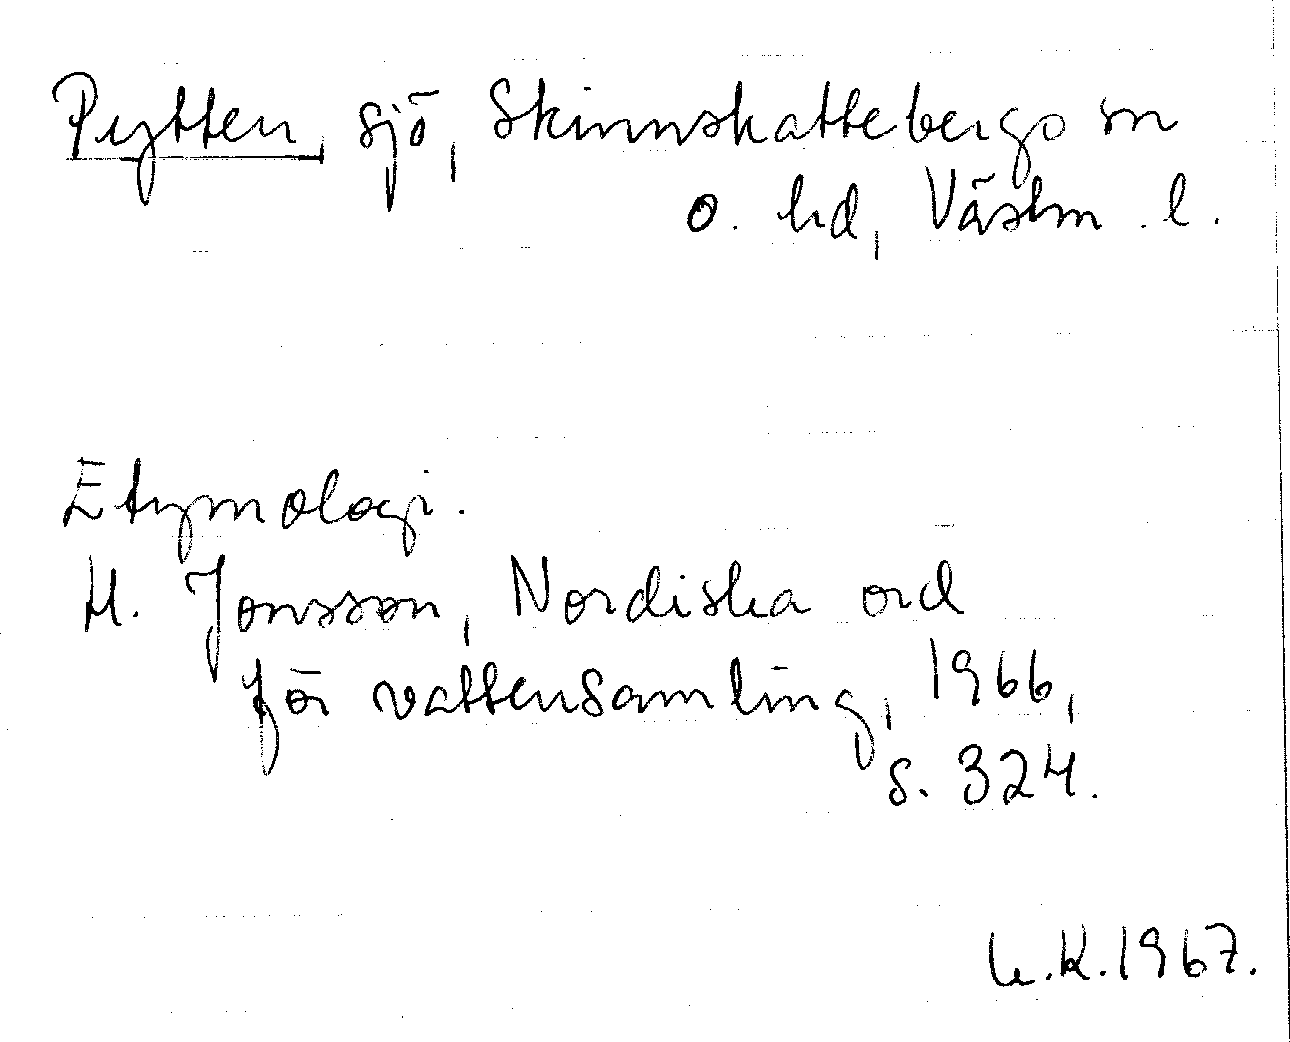 Pytten, sjö, Skinnskattebergs sn
o. hd, Västm. l.
Etymologi.
H. Jonsson, Nordiska ord
för vattensamling, 1966,
s. 324.
L.K. 1967.